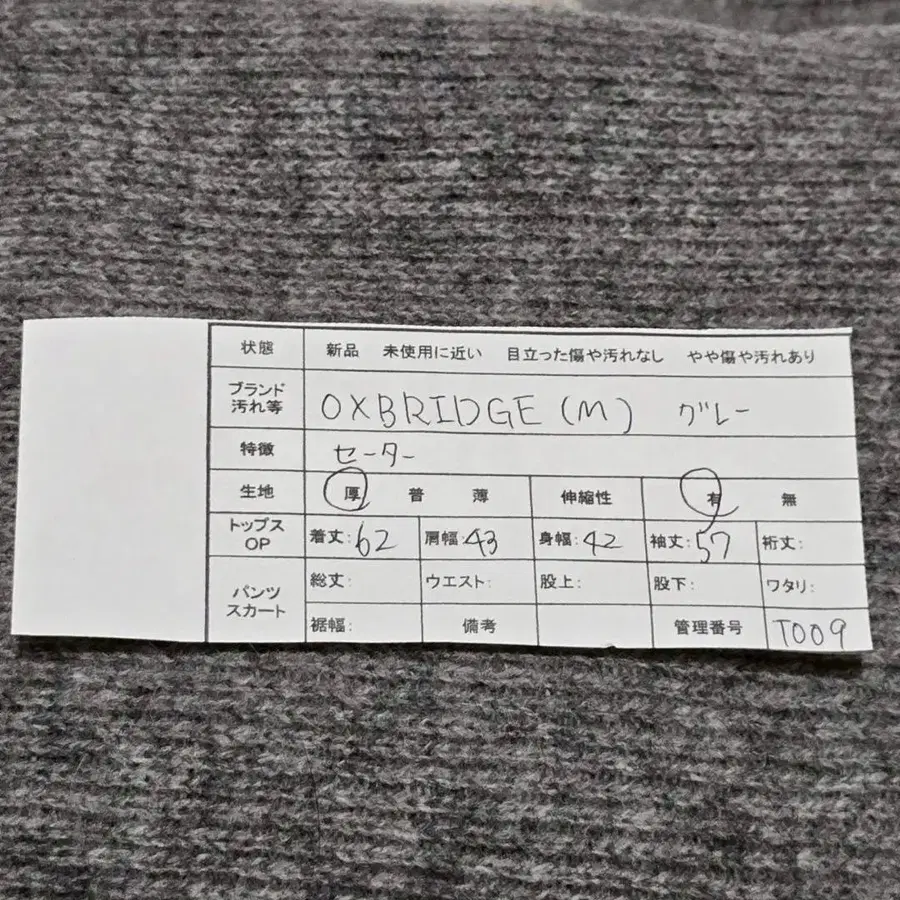 状態 新品 未使用に近い 目立った傷や汚れなし やや傷や汚れあり
ブランド
汚れ等 OXBRIDGE (M) グレー
特徴 セーター
生地 厚 普 薄 伸縮性 有 無
トップス
OP 着丈: 62 肩幅: 43 身幅: 42 袖丈: 57 裄丈:
パンツ
スカート 総丈: ウエスト: 股上: 股下: ワタリ:
裾幅: 備考 管理番号 T009